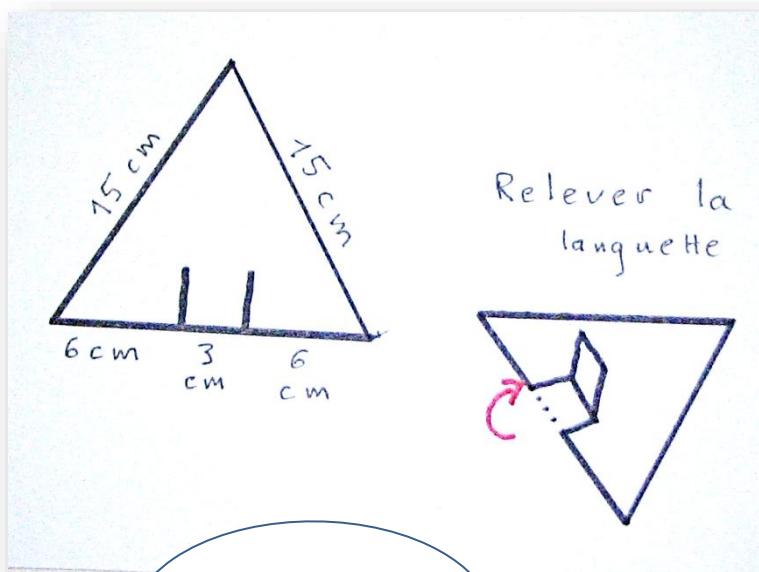 15 cm
15 cm
6 cm
3
cm
6
cm
Relever la
languette